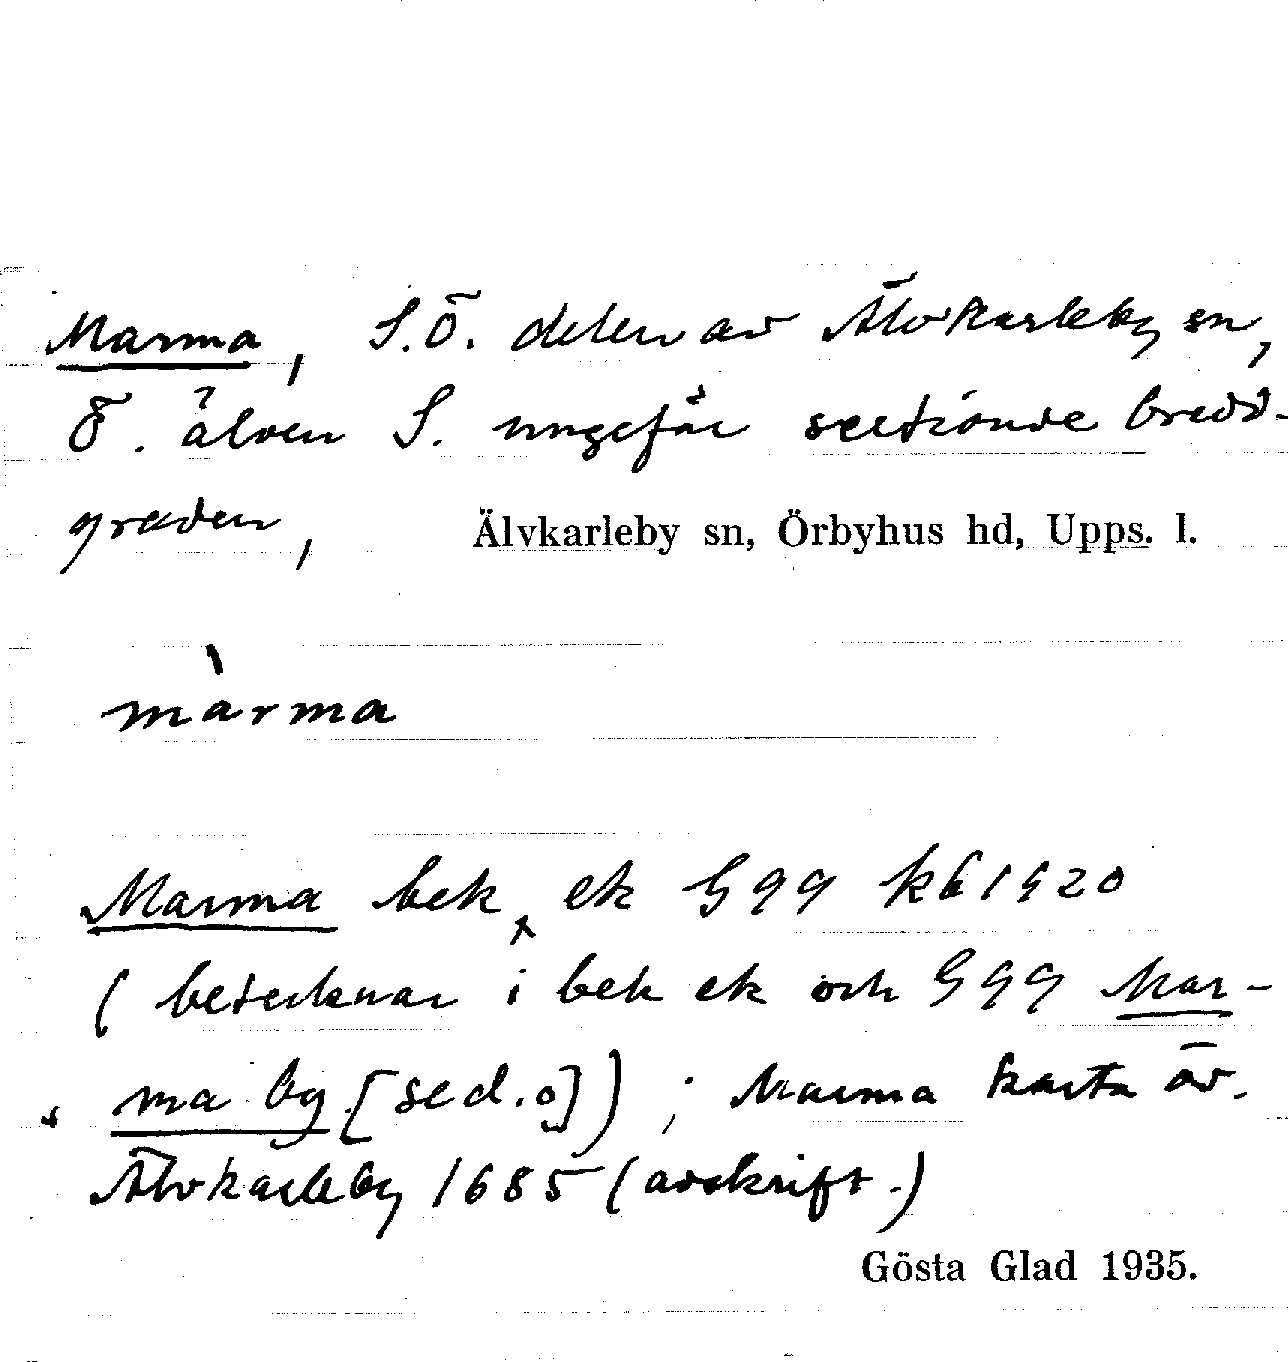 Marma, S.Ö. delen av Älvkarleby sn,
Ö. älven S. ungefär sextionde bredd-
graden, Älvkarleby sn, Örbyhus hd, Upps. l.
màrma
Marma bek, ek G 99 kb 1920
( betecknar i bek ek och G 99 Mar-
ma by [se d.o]) ; Marma karta öv.
Älvkarleby 1685 (avskrift.)
Gösta Glad 1935.